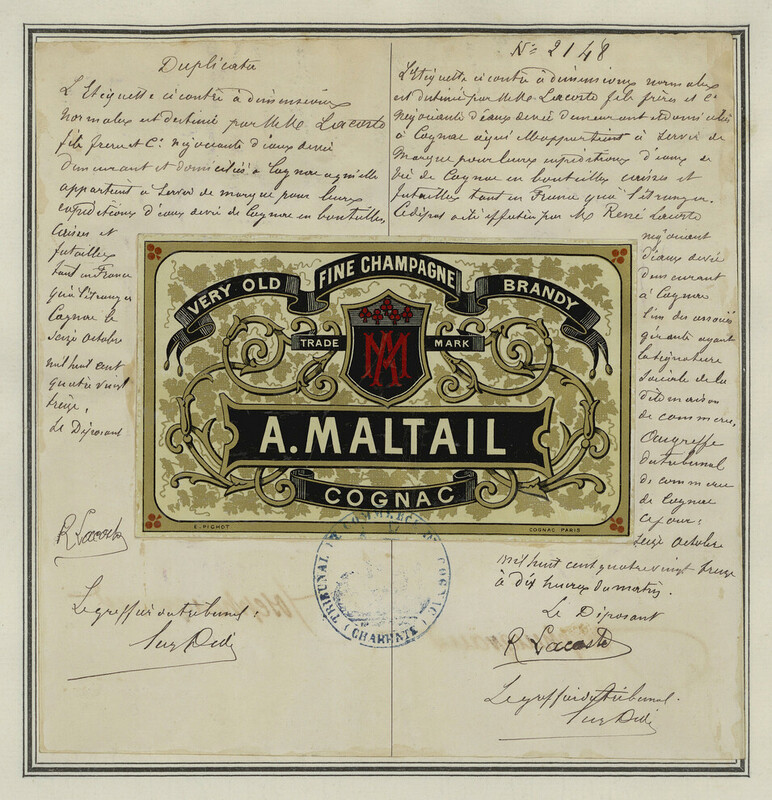 Duplicata
L'Etiquette ci contre à dimensions
normales est destiné par MM. Lacoste
fils frères et Cie négociants d'eaux devie
demeurant et domiciliés à Cognac
appartient à servir de marque pour leurs
expéditions d'eaux devie de Cognac en bouteilles
Caisses et
futailles
tant en France
qu'à l'étranger
Cognac le
Seize Octobre
mil huit cent
quatre vingt
treize.
Le Déposant
R. Lacoste
Le greffier du tribunal.
No 2148
L'Etiquette ci contre à dimensions normales
est destiné par MM. Lacoste fils frères et Cie
négociants d'eaux devie demeurant et domiciliés
à Cognac appartient à servir de
Marque pour leurs expéditions d'eaux de
vie de Cognac en bouteilles caisses et
futailles tant en France qu'à l'étranger.
Le dépot a été effectué par M. René Lacoste
négociant
d'eaux devie
demeurant
à Cognac
l'un des associés
gérants ayant
la signature
sociale de la
dite maison
de commerce,
Au greffe
du tribunal
de commerce
de Cognac
ce jour:
Seize Octobre
mil huit cent quatre vingt treize
à dix heures du matin.
Le Déposant
R. Lacoste
Le greffier du tribunal.
VERY OLD FINE CHAMPAGNE BRANDY
TRADE AM MARK
A. MALTAIL
COGNAC
E. PICHOT COGNAC PARIS
TRIBUNAL DE COMMERCE DE COGNAC
(CHARENTE)